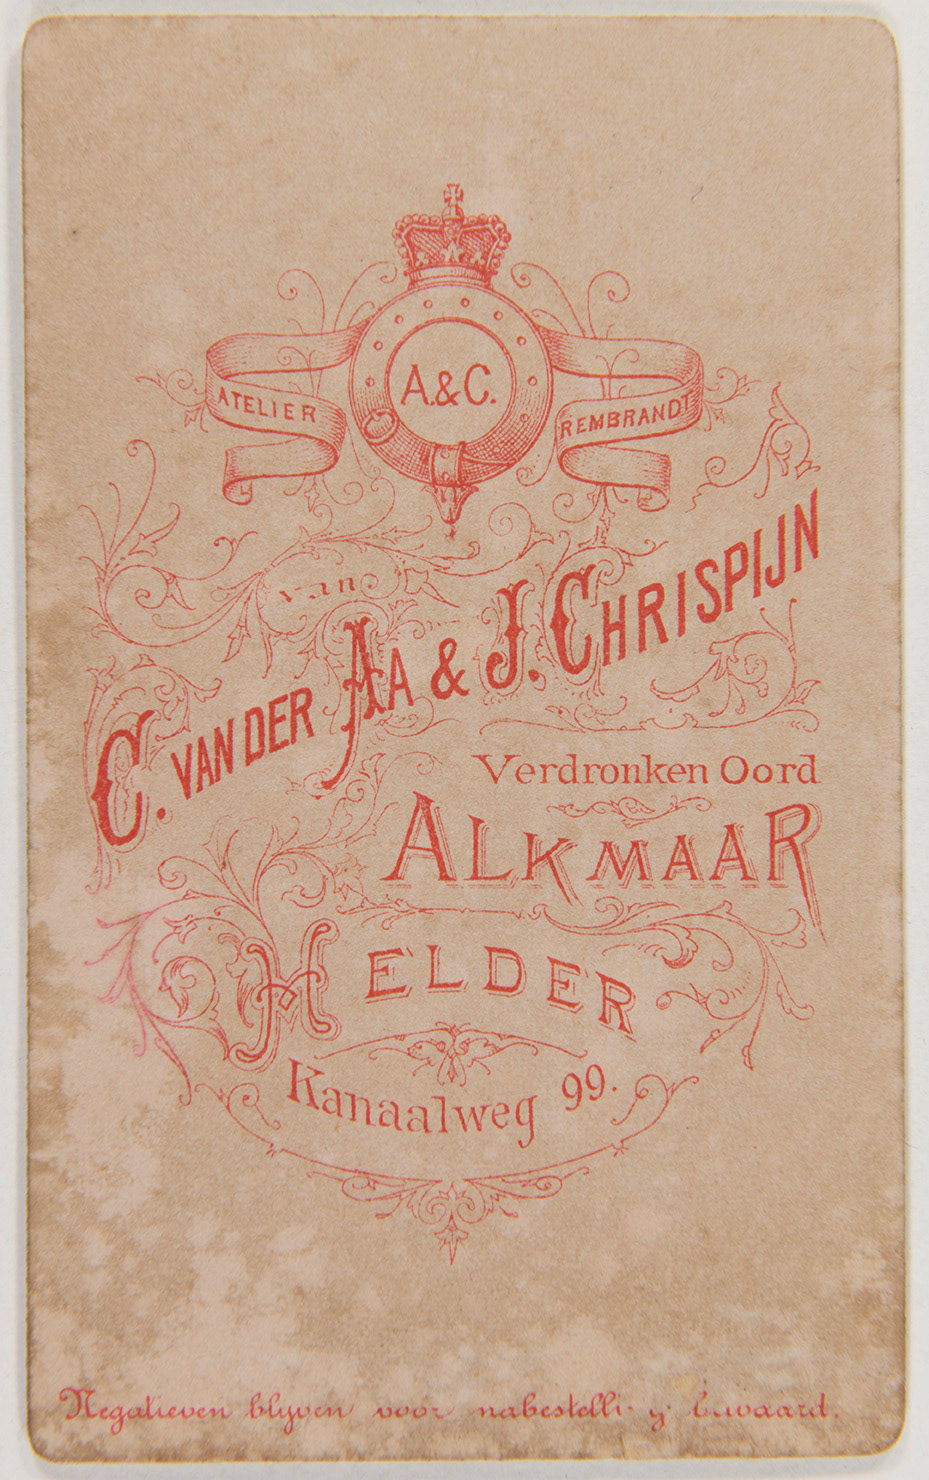 A.&C.
ATELIER REMBRANDT
van
C. VAN DER AA & J. CHRISPIJN
Verdronken Oord
ALKMAAR
HELDER
Kanaalweg 99.
Negatieven blyven voor